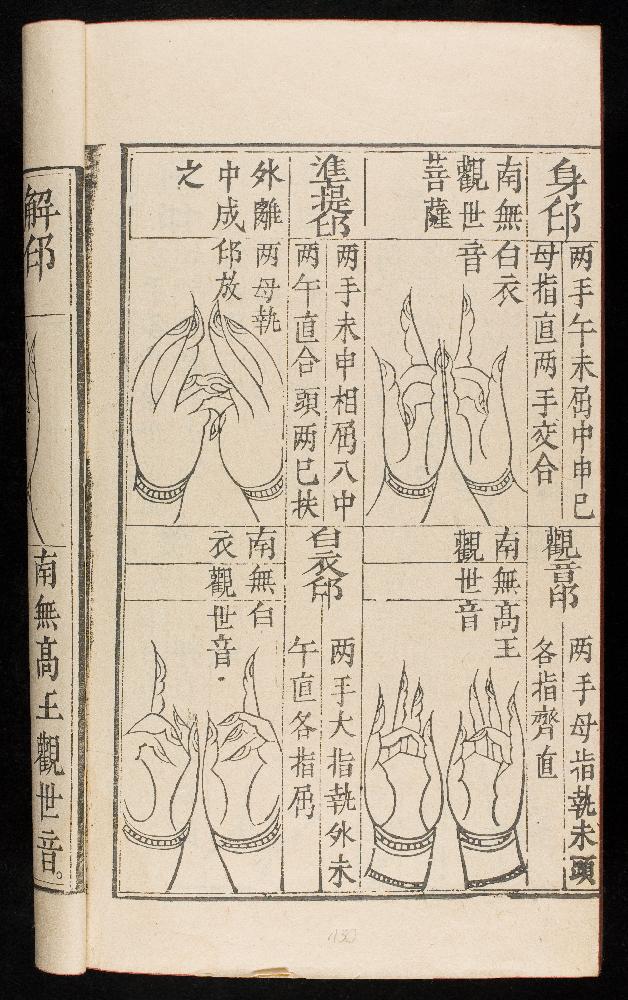 身印
两手午未屈中申巳
母指直两手交合
南無白衣
觀世音
菩薩
準提印
两手未申相屈入中
两午直合頭两巳扶
外離两母執
中成印放
之
觀音印
两手母指執未頭
各指齊直
南無髙王
觀世音
白衣印
两手大指執外未
午直各指屈
南無白
衣觀世音
解印
南無髙王觀世音。